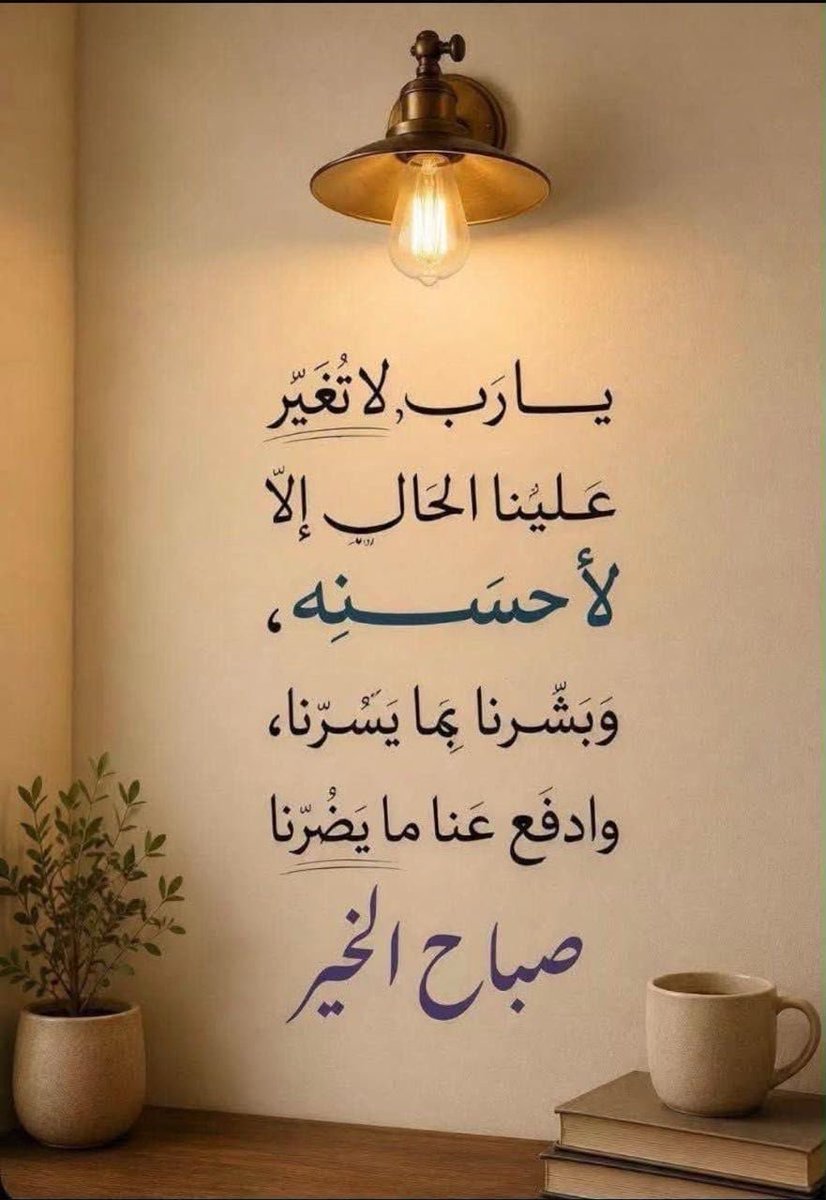 يــــا رَب, لا تُغَيّر
عَـليْنا الحَال إلّا
لأحسَــــنِه ،
وَبَشّرنا بِمَا يَسُرّنا،
وادفَع عَنا ما يَضُرّنا
صباح الخير